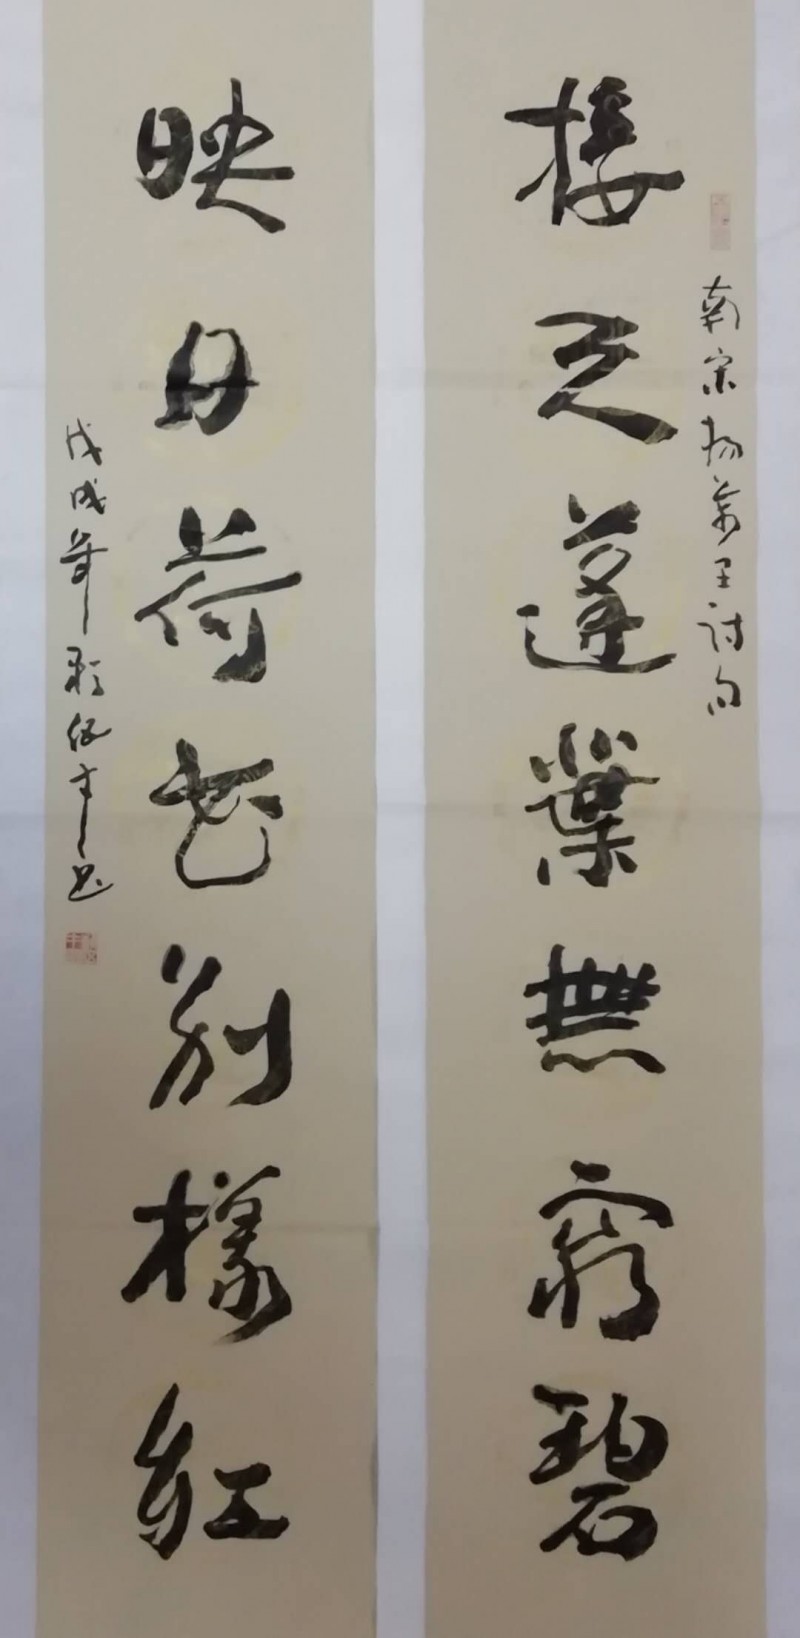 南宋楊萬里詩句
接天蓮葉無窮碧
映日荷花別樣紅
戊戌年書